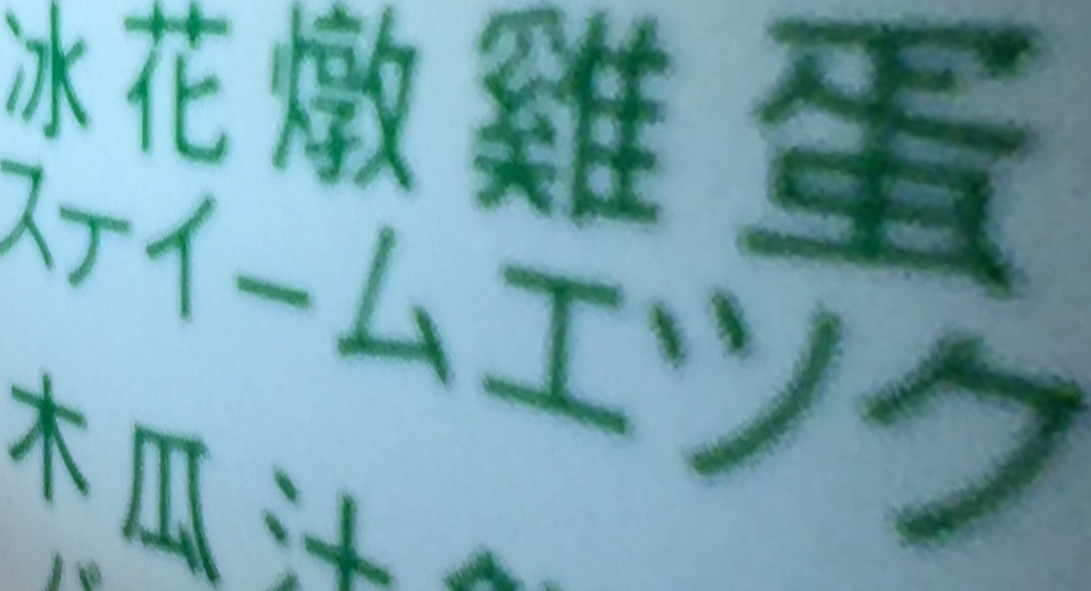 冰花燉雞蛋
スティームエック
木瓜汁